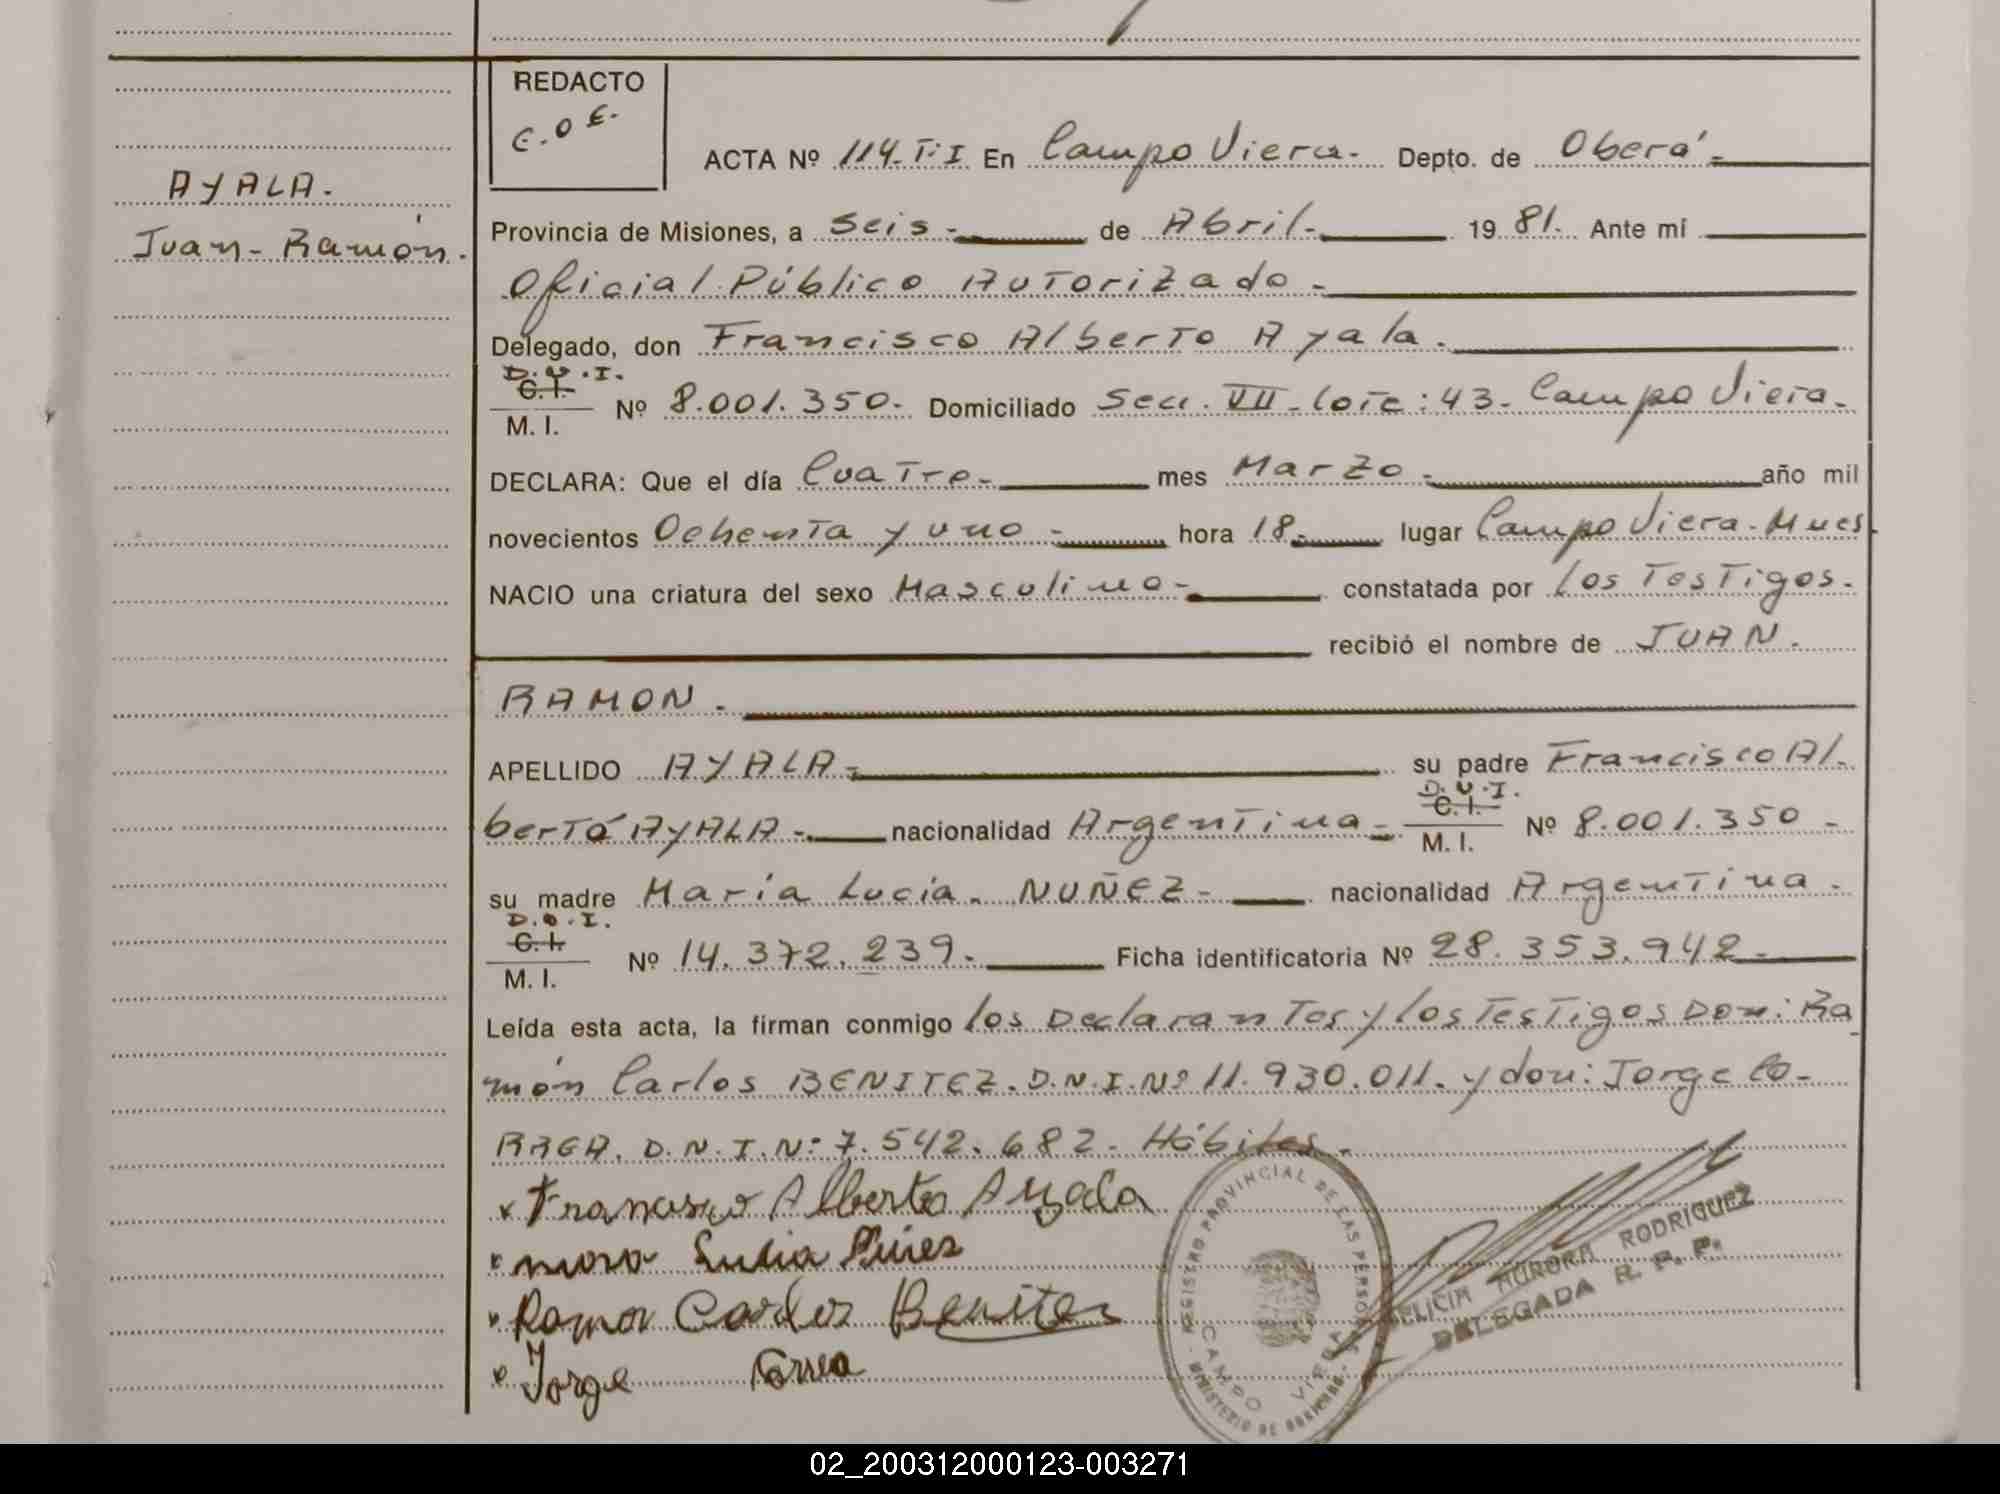 REDACTO
E.O.E.
ACTA Nº 114-T:I En Campo Viera.- Depto. de Oberá.-
AYALA.
Juan-Ramón.
Provincia de Misiones, a Seis.- de Abril.- 19 81. Ante mí
Oficial Público Autorizado.-
Delegado, don Francisco Alberto Ayala.
D.U.I.
C.I.
M. I. Nº 8.001.350.- Domiciliado Secc. VII-Lote: 43- Campo Viera.-
DECLARA: Que el día Cuatro.- mes Marzo.- año mil
novecientos Ochenta y uno.- hora 18.- lugar Campo Viera.
NACIO una criatura del sexo Masculino.- constatada por Los Testigos.
recibió el nombre de JUAN.
RAMON.
APELLIDO AYALA.- su padre Francisco Al.
D.U.I.
C.I.
berto AYALA.- nacionalidad Argentina.- M. I. Nº 8.001.350.-
su madre María Lucía. NUÑEZ.- nacionalidad Argentina.
C.I.
M. I. Nº 14.372.239.- Ficha identificatoria Nº 28.353.942.-
Leída esta acta, la firman conmigo los Declarantes y los Testigos Don: Ra
món Carlos BENITEZ. D.N.I. Nº 11.930.011. y don: Jorge Co-
RREA. D.N.I.N: 7.542.682.- Hábiles.-
Francisco Alberto Ayala
Ramon Carlos Benitez
Jorge Correa
REGISTRO PROVINCIAL DE LAS PERSONAS
MINISTERIO DE GOBIERNO
CAMPO VIERA
FELICIA AURORA RODRIGUEZ
DELEGADA R. P. P.
02_200312000123-003271